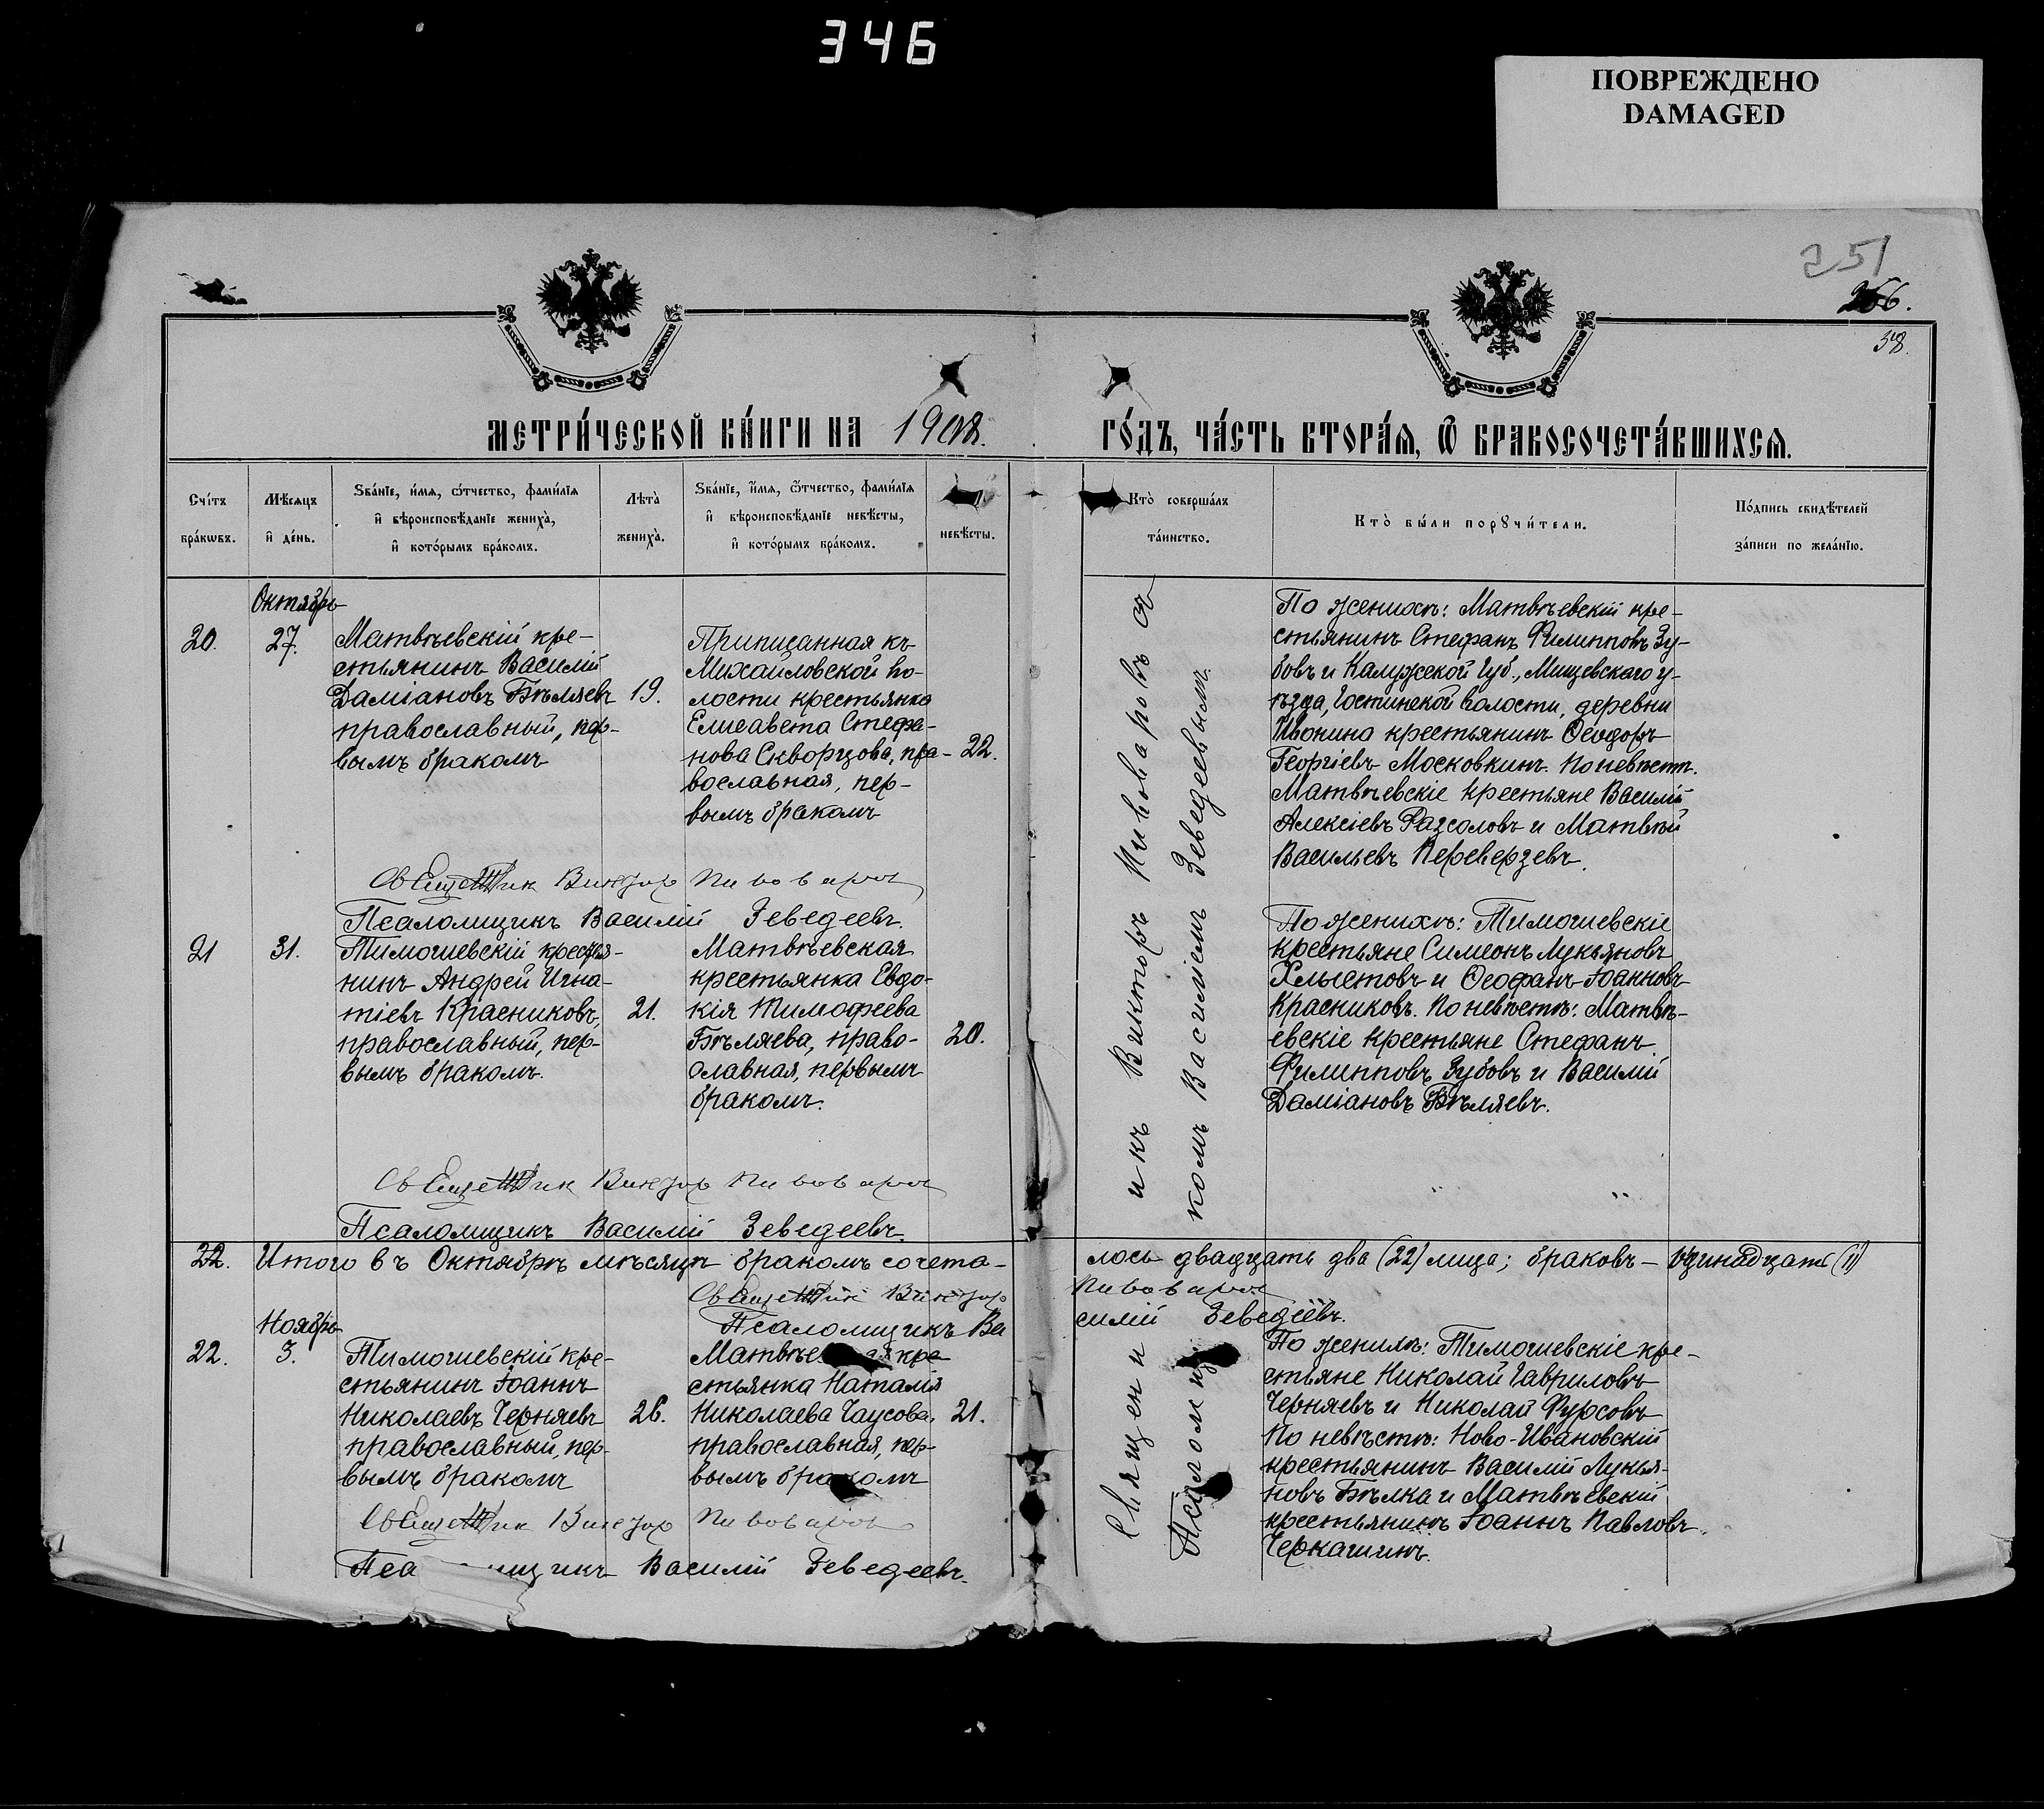 346
ПОВРЕЖДЕНО
DAMAGED
251
38.
МЕТРИ́ЧЕСКОЙ КНИ́ГИ НА 1908.
ГО́ДЪ, ЧА́СТЬ ВТОРА́Ѧ, Ѿ БРАКОСОЧЕТА́ВШИХСѦ.
Сче́тъ
бра́кѡвъ.
Мѣ́сяцъ
и҆ де́нь.
Зва́нїе, и҆́мѧ, ѻ҆́тчество, фами́лїѧ
и҆ вѣроисповѣ́данїе жениха̀,
и҆ кото́рымъ бра́комъ.
Лѣ́та
жениха̀.
Зва́нїе, и҆́мѧ, ѻ҆́тчество, фами́лїѧ
и҆ вѣроисповѣ́данїе невѣ́сты,
и҆ кото́рымъ бра́комъ.
невѣ́сты.
Кто̀ соверша́лъ
та́инство.
Кто̀ бы́ли порꙋчи́тели.
По́дпись свидѣ́телей
за́писи по жела́нїю.
Октябрь
20.
27.
Матвѣевскій кре-
стьянинъ Василій
Даміановъ Бѣляевъ
православный, пер-
вымъ бракомъ
19.
Приписанная къ
Михайловской во-
лости крестьянка
Елисавета Стефа-
нова Скворцова, пра-
вославная, пер-
вымъ бракомъ
22.
По женихѣ: Матвѣевскій кре-
стьянинъ Стефанъ Филипповъ Зу-
бовъ и Калужской Губ., Мищевскаго у-
ѣзда, Гостинской волости, деревни
Ивонино крестьянинъ Ѳеодоръ
Георгіевъ Московкинъ. По невѣстѣ.
Матвѣевскіе крестьяне Василій
Алексіевъ Разсоловъ и Матвѣй
Васильевъ Переверзевъ.
Священникъ Викторъ Пивоваровъ
Псаломщикъ Василій Зеведеевъ.
21
31.
Тимошевскій крестья-
нинъ Андрей Игна-
тіевъ Красниковъ,
православный, пер-
вымъ бракомъ.
21.
Матвѣевская
крестьянка Евдо-
кія Тимофеева
Бѣляева, право-
славная, первымъ
бракомъ.
20.
По женихѣ: Тимошевскіе
крестьяне Симеонъ Лукьяновъ
Хлыстовъ и Ѳеофанъ Іоанновъ
Красниковъ. По невѣстѣ: Матвѣ-
евскіе крестьяне Стефанъ
Филипповъ Зубовъ и Василій
Даміановъ Бѣляевъ.
Священникъ Викторъ Пивоваровъ
Псаломщикъ Василій Зеведеевъ.
22. Итого въ Октябрѣ мѣсяцѣ бракомъ сочета-
лось двадцать два (22) лица; браковъ – одинадцать (11)
Священникъ Викторъ Пивоваровъ
Псаломщикъ Василій Зеведеевъ.
Ноябрь
22.
3.
Тимошевскій кре-
стьянинъ Іоаннъ
Николаевъ Черняевъ
православный, пер-
вымъ бракомъ
26.
Матвѣевская кре
стьянка Наталія
Николаева Чаусова,
православная, пер-
вымъ бракомъ
21.
По женихѣ: Тимошевскіе кре-
стьяне Николай Гавриловъ
Черняевъ и Николай Фурсовъ
По невѣстѣ: Ново-Ивановскій
крестьянинъ Василій Лукья-
новъ Бѣлка и Матвѣевскій
крестьянинъ Іоаннъ Павловъ
Черкашинъ.
Священникъ Викторъ Пивоваровъ
Псаломщикъ Василій Зеведеевъ.
Священникъ Викторъ Пивоваровъ съ
Псаломщикомъ Василіемъ Зеведеевымъ.